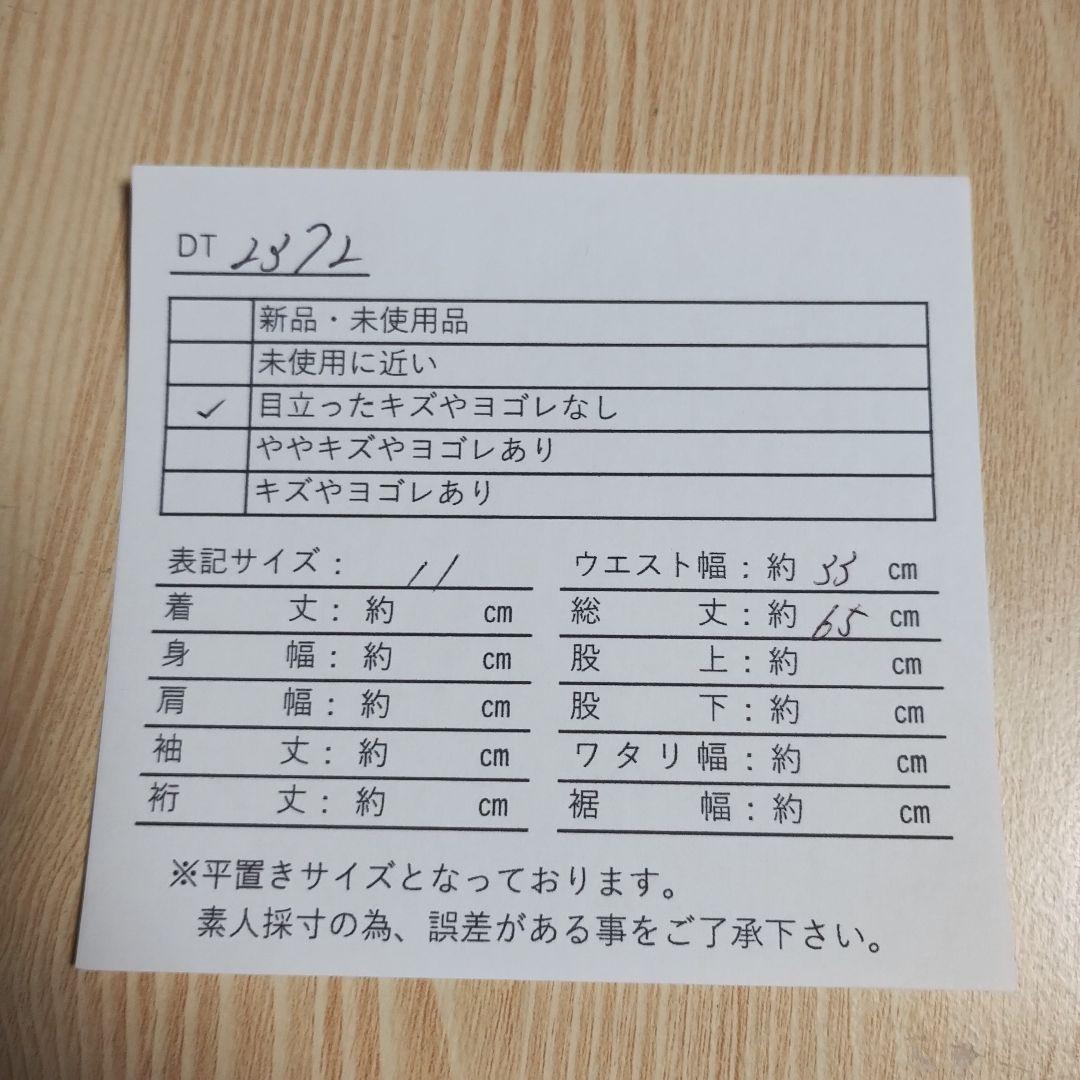 DT 2372
新品・未使用品
未使用に近い
✓ 目立ったキズやヨゴレなし
ややキズやヨゴレあり
キズやヨゴレあり
表記サイズ: 11
着丈:約 cm
身幅:約 cm
肩幅:約 cm
袖丈:約 cm
裄丈:約 cm
ウエスト幅:約 33 cm
総丈:約 65 cm
股上:約 cm
股下:約 cm
ワタリ幅:約 cm
裾幅:約 cm
※平置きサイズとなっております。
素人採寸の為、誤差がある事をご了承下さい。